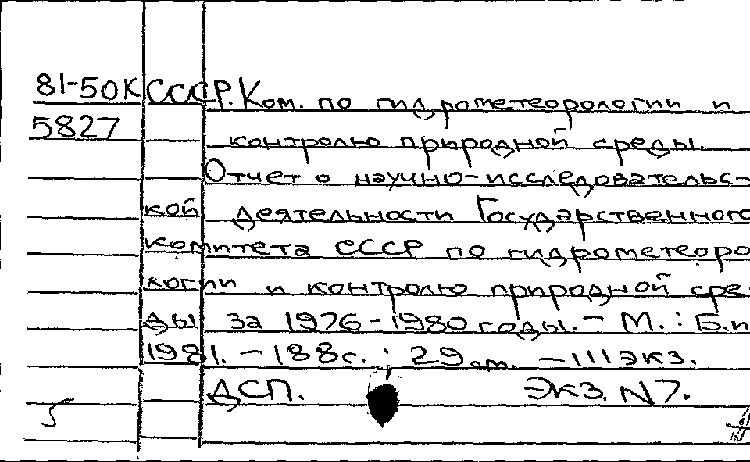 81-50К СССР. Ком. по гидрометеорологии и
5827 контролю природной среды.
Отчет о научно-исследовательс-
кой деятельности Государственного
комитета СССР по гидрометеоро
логии и контролю природной сре
ды за 1976-1980 годы. - М.: Б.и
1981. - 188с.; 29 см. - 111 экз.
ДСП. Экз. N7.
5